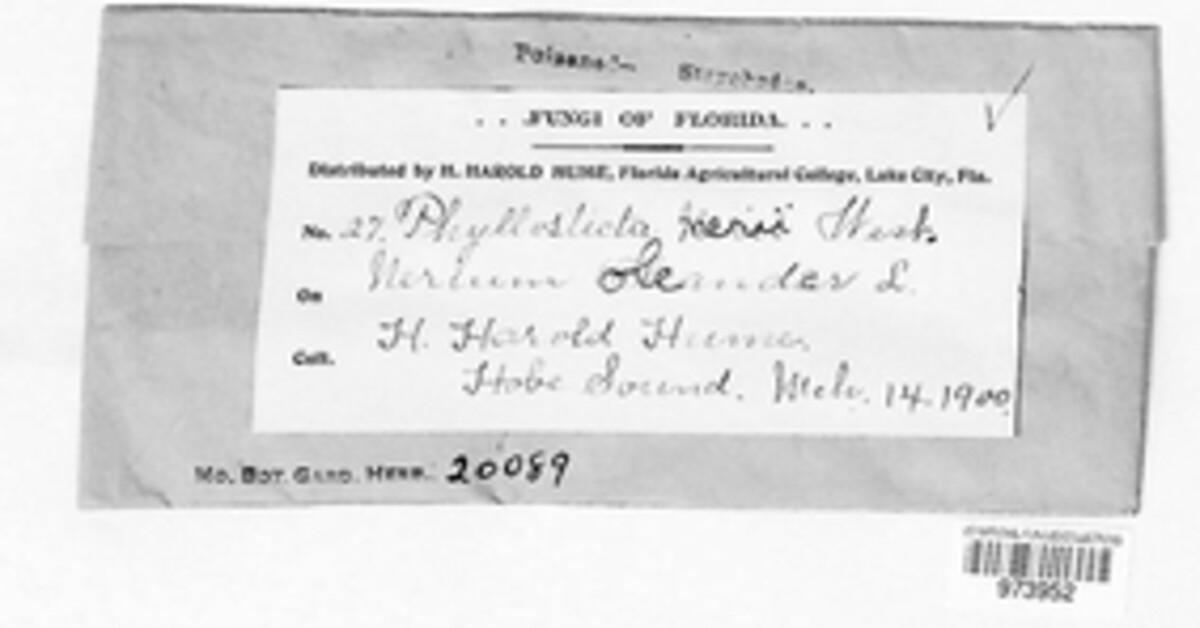 Poisoned
. . .FUNGI OF FLORIDA. . .
Distributed by H. HAROLD HUME, Florida Agricultural College, Lake City, Fla.
No. 27. Phyllosticta Nerii West.
On Nerium Oleander L.
Coll. H. Harold Hume,
Hobe Sound. Mch. 14. 1900
MO. BOT. GARD. HERB. 20089
973952